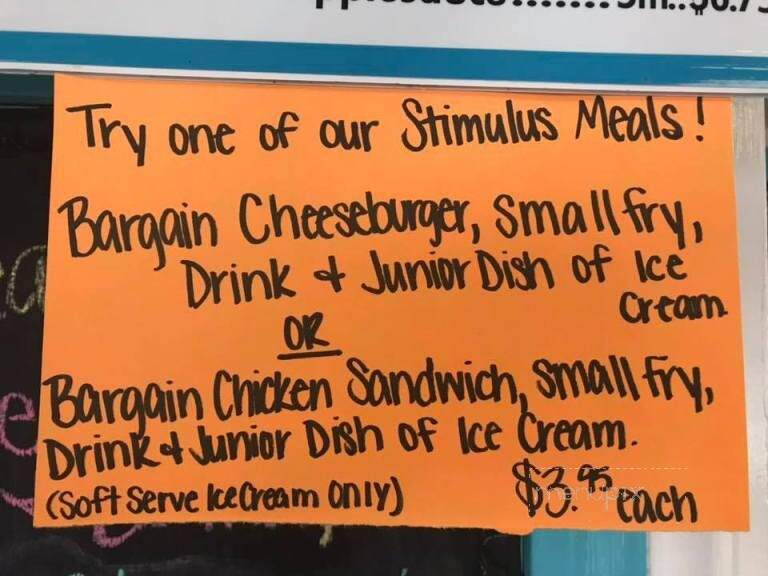 Try one of our Stimulus Meals!
Bargain Cheeseburger, Small fry,
Drink & Junior Dish of Ice
Cream
OR
Bargain Chicken Sandwich, Small fry,
Drink & Junior Dish of Ice Cream.
(Soft Serve Ice Cream Only)
$3.95 each
menupix